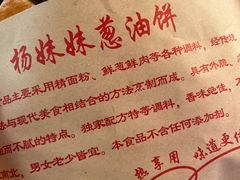 杨妹妹葱油饼
品主要采用精面粉、鲜葱鲜肉等各种调料，经传统
法与现代美食相结合的方法烹制而成。具有外脆、
而不腻的特点。独家配方特等调料，香味绝佳，
南北，男女老少皆宜。本食品不含任何添加剂。
热享用 味道更